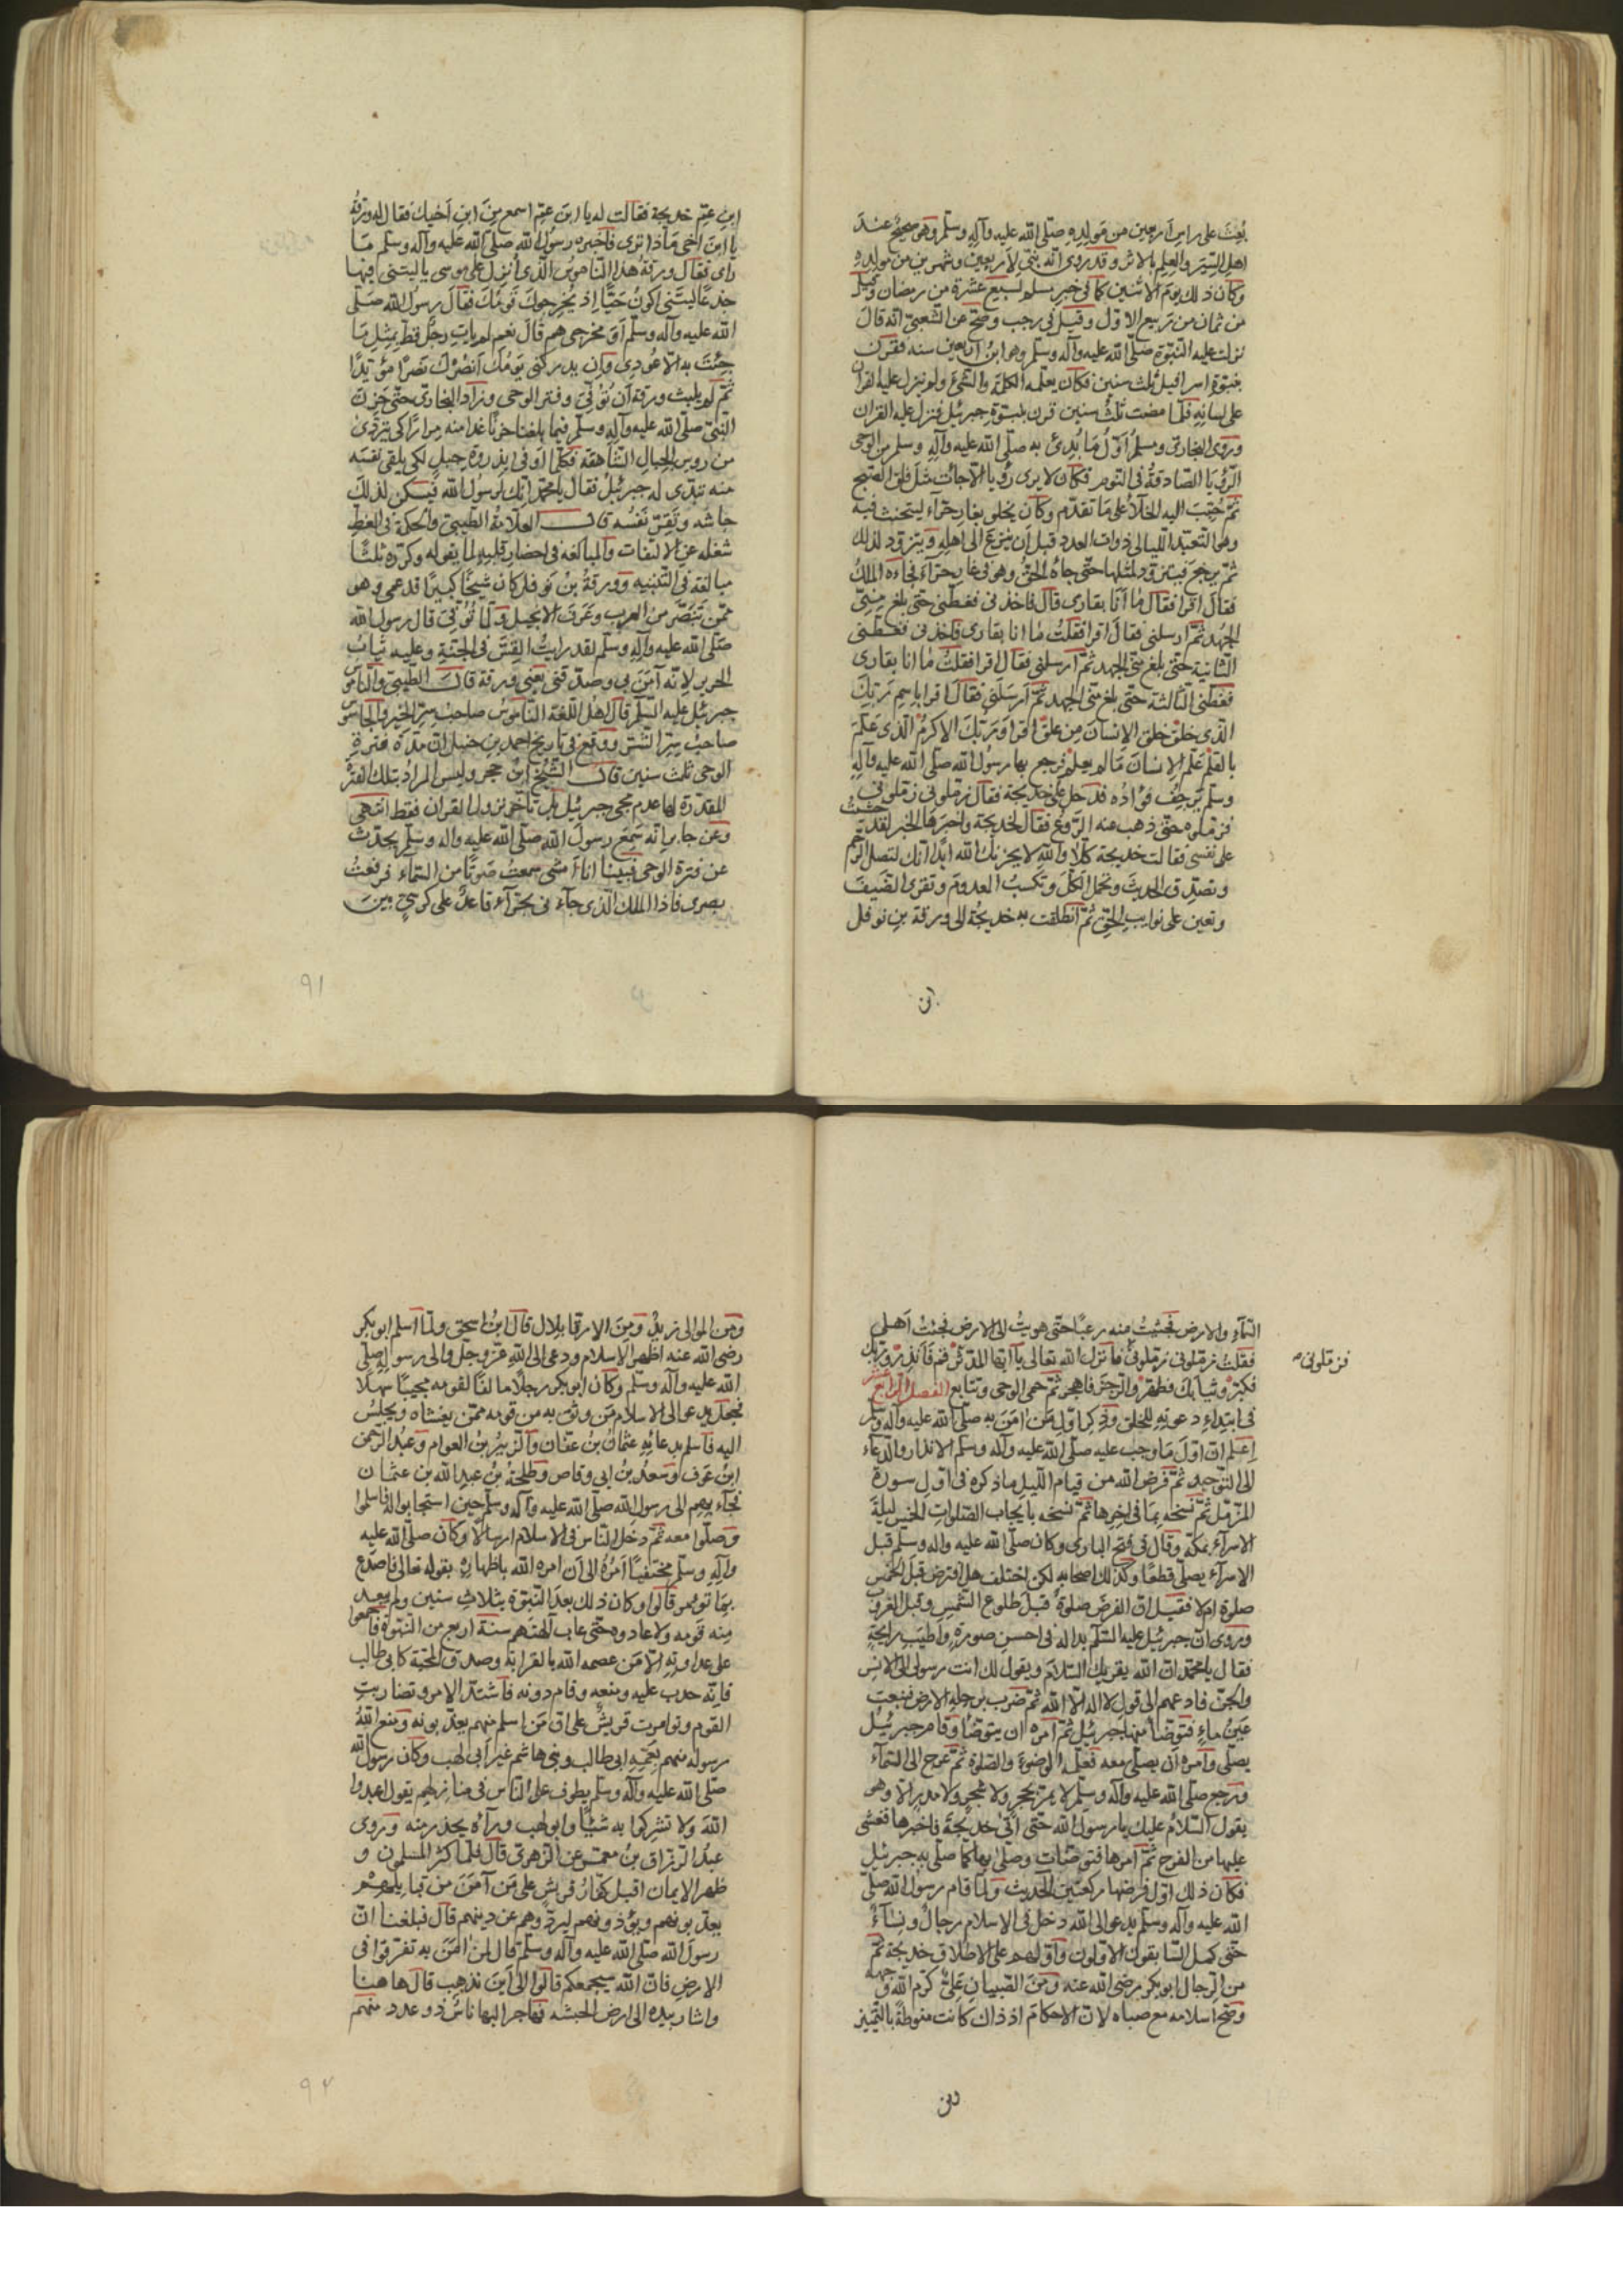 بُعِثَ على راس اَربعين من مَولِدِهِ صلّى الله عليه وآلِهِ وسلّم وهى صحيحٌ عندَ
اهلِ السِّيَر والعِلمِ بالاثر وقد روى انّه نبّئ لِاَربعين وشهرين من مولِدِهِ
وكان ذلك يومَ الاثنين كما في خبر مسلم لسبع عشرة من رمضان وقيل
من ثمان من ربيع الاوّل وقيل في رجب وصحّ عن الشعبىّ انّه قالَ
نزلت عليه النبّوة صلّى الله عليه وآلِهِ وسلّم وهوا بنُ اربعين سنه فقرن
بنبّوته اسرافيل ثلث سنين فكان يعلّمه الكلمة والشئ ولم ينزل عليه القران
على لسانِهِ فلمّا مضت ثلثُ سنين قرن بنبوّتهِ جبرئيل فنزل عليه القران
وروى البخارى ومسلمٌ اوّل ما بُدِئ به صلّى الله عليه وآلِهِ وسلم من الوحى
الرّؤيا الصّادقةُ في النوم فكان لا يرى رؤيا الّا جاءت مثلَ فلق الصّبح
ثمّ حُبّبَ اليه الخلآءُ على ما تقدّم وكان يخلو بغارِ حرآء ليتحنث فيه
وهو التعبّد اللّيالى ذوات العدد قبل أن ينزع الى اهلِهِ ويتزوّد لذلك
ثمّ يرجع فيتزوّد لمثلها حتّى جاءُه الحقُّ وهو في غارِ حرّاءَ فجاءه الملكُ
فقالَ اقرا فقال مٰا أنَا بقارى قال فاخذنى فغطّنى حتّى بلغ منّى
الجُهد ثمّ ارسلنى فقالَ اقرا فقلتُ مٰا انا بقارى فاخذنى فغطّنى
الثّانية حتّى بلغ منّى الجهد ثمّ اَرسلنى فقال اقرا فقلتُ مٰا انا بقارى
فغطّنى الثّالثة حتّى بلغ منّى الجهد ثمّ اَرسَلَنى فقالَ اقرا باسِمِ رَبّكِ
الّذى خلق خلق الانسانَ مِن علق اقرا ورَبّكَ الاكرمُ الّذى عَلّمَ
بالقلم عَلّم الانسانَ مَا لم يعلم فرجع بها رسُول الله صلّى الله عليه وآلِهِ
وسلّم يَرجف فؤادُه فدخل على خديجة فقال زمّلونى زمّلونى
فزمّلوه حتّى ذهب عنه الرّوعُ فقال لخديجة واخبرها الخبر لقد خشيتُ
على نفسى فقالت خديجة كلّا والله لا يحزنك الله ابدًا انّك لتصل الرّحم
وتصدق الحديثَ وتحمل الكَلَّ وتكسبُ المعدومَ وتقرى الضّيفَ
وتعين على نوايب الحقِّ ثمّ انطلقت به خديجةُ الى ورقة بن نوفل
ابن
ابن عمّ خديجة فقالت له يا ابنَ عمّ اسمع مِنَ ابن اَخيك فقال له ورقةُ
يا ابنَ اخى مَاذا ترى فاخبره رسولُ الله صلّى الله عليه وآله وسلّم مَا
رَأى فقال ورقةُ هذا النّاموسُ الّذى اُنزل على موسى يا ليتنى فيها
جذعًا ليتنى اكونُ حَيًّا اِذ يُخرجوكَ قومُكَ فقال رسول الله صَلّى
الله عليه وآله وسلّم اَوَ مخرجى هم قالَ نعم لم يات رجلٌ قط بمثل مَا
جِئتَ به الّا عُودِى وان يدركنى يومُكَ اَنصُرْكَ نَصرًا مؤيّدًا
ثمّ لم يلبث ورقة اَن تُوُفّىَ وفتر الوحى وزاد البخارى حتّى حزنَ
النّبىّ صلّى الله عليه وآلِهِ وسلّم فيما بلغنا حزنًا غدا منه مرارًا كى يتردّى
من روس الجبالِ الشّاهقة فكلّما اَوفى بذروة جبلٍ لكى يلقى نفسَه
منه تبدّى له جبرئيل فقال يا محمّد انّك لرسُول الله فيَسكن لذلكَ
جاشُه وتقرّ نفسُه قال العلّامةُ الطّيبى والحكمة في الغطّ
شغله عن الالتفات والمبالغه في احضارِ قلبِهِ لما يقوله وكرّره ثلثًا
مبالغة في التّنبيه وورقة بن نوفل كان شيخًا كبيرًا قد عمى وهو
ممّن تنصّر من العرب وعَرَفَ الانجيل ولمّا تُوُفّىَ قال رسول الله
صلّى الله عليه وآلِهِ وسلّم لقد رايتُ القِسَّ في الجنّة وعليه ثيابُ
الحرير لِانّه اَمَنَ بى وصدّقنى يعنى ورقة قالَ الطّيبى والنّاموسُ
جبرئيل عليه السّلم قال اهلُ اللّغة النّاموسُ صاحبُ سِرّ الخير والجاسوسُ
صاحبُ سِرّ الشّرّ ووقع في تاريخ احمد بن حنبل انّ مدّة فترةِ
الوحى ثلث سنين قال الشّيخ ابنُ حجر وليس المرادُ بتلك الفترةِ
المقدّرة لها عدم مجى جبرئيل بل تاخّر نزول القران فقط انتهى
وعن جابرٍ انّه سَمِعَ رسولَ الله صلّى الله عليه وآله وسلّم يحدّثُ
عن فترة الوحى فبينا انا اَمشى سمعتُ صَوتًا من السّماء فرفعتُ
بصرى فاذا الملك الّذى جآء نى بحرآء قاعدٌ على كرسىّ بينَ
٩١
السّمآءِ والارضِ فجئثتُ منه رعبًا حتّى هويتُ الى الارض فجئتُ اَهلى
فقلتُ زمّلونى زمّلونى فانزل الله تعالى يا ايّها المدّثّر قم فانذر وربّك
فزمّلونى
فكبّر وثيابك فطهّر والرّجزَ فاهجر ثمّ حمى الوحى وتتابع الفصل الرّابع عشر
فى ابتداءِ دعوتِهِ للخلق وذكر اوّل مَن اٰمَنَ به صلّى الله عليه وآله وسلّم
اِعلم انّ اوّلَ مَا وجب عليه صلّى الله عليه وآله وسلّم الانذار والدعاء
الى التّوحيد ثمّ فرض الله من قيام اللّيلِ ما ذكره في اوّل سورة
المزّمّل ثمّ نسخه بِمَا في اٰخِرِها ثمّ نسخه بايجاب الصّلواتِ الخمس ليلةَ
الاسرآء بمكّة وقال في فتح البارى وكان صلّى الله عليه واله وسلّم قبل
الاسرآء يصلّى قطعًا وكذلك اصحابه لكن اختلف هل افترض قبلَ الخمس
صلوة ام لا فقيل انّ الفرضَ صلوةٌ قبلَ طلوع الشّمس وقبل الغروب
وروى انّ جبرئيل عليه السّلم بدا له في احسنِ صورةٍ واَطيب رايحةٍ
فقال يا محمّد انّ الله يقريك السّلامَ ويقول لك انت رسولى الى الانس
والجنّ فادعهم الى قول لا اله الّا الله ثمّ ضرب برجلِهِ الارض فنبعت
عَينُ ماءٍ فتوضّأ منها جبرئيل ثمّ اَمره ان يتوضّأ وقام جبرئيل
يصلّى وامره اَن يصلّى معه فعلّمه الوضوءَ والصّلوة ثمّ عرج الى السّمآء
ورجع صلّى الله عليه وآله وسلّم لا يمرّ بحجرٍ ولا شجرٍ ولا مدرٍ الّا وهو
يقول السّلامُ عليك يا رسولَ الله حتّى اَتى خديجةَ فاخبرها فغشى
عليها من الفرح ثمّ امرها فتوضّأت وصلّى بها كما صلّى به جبرئيل
فكان ذلك اوّل فرضها ركعتين الحديث ولمّا قام رسول الله صلّى
الله عليه وآله وسلّم يدعو الى الله دخل في الاسلام رجالٌ ونسآءٌ
حتّى كمل السّابقون الاوّلون واوّلهم على الاطلاق خديجة ثمّ
من الرّجال ابو بكر رضى الله عنه ومنَ الصّبيان عَلىّ كرّم الله وجهه
وصحّ اسلامه مع صباه لانّ الاحكام اذ ذاك كانت منوطةً بالتّمييز
ومن
ومن الموالى زيدٌ ومِنَ الارقّا بلال قال ابنُ اسحق ولمّا اسلم ابو بكر
رضى الله عنه اظهر الاسلام ودعى الى الله عزّ وجلّ والى رسولِهِ صلّى
الله عليه وآله وسلّم وكان ابو بكر رجلًا مالفًا لقومِهِ محبّبًا سهلًا
فجعل يدعو الى الاسلام من وثق به من قومه ممّن يغشاه ويجلسُ
اليه فاسلم بدعائِهِ عثمان بن عفّان والزّبيرُ بن العوام وعبد الرّحمن
ابنُ عَوف وسعدُ بنُ ابى وقاص وطلحةُ بنُ عبد الله بن عثمان
فجآء بهم الى رسول الله صلّى الله عليه وآله وسلّم حين استجابوا له فاسلموا
وصلّوا معه ثمّ دخل النّاس في الاسلام ارسالًا وكان صلّى الله عليه
وآلِهِ وسلّم مختفيًا اَمرُهُ الى اَن امره الله باظهاره بقوله تعالى فاصدع
بِمَا تؤمر قالوا وكان ذلك بعد النّبوّة بثلاثِ سنين ولم يبعد
منه قومه ولا عادوه حتّى عاب الهتهم سنة اربعٍ من النّبوة فاجمعوا
على عداوتِهِ الّا مَن عصمه الله بالقرابة وصدق المحبّة كابى طالب
فانّه حدب عليه ومنعه وقام دونه فاشتدّ الامر وتضاربتِ
القوم وتوامرت قريشٌ على انّ مَن اسلم منهم يعذّبونه ومنع اللهُ
رسوله منهم بعَمّهِ ابى طالب وبنى هاشم غير اَبى لهب وكان رسول الله
صلّى الله عليه وآله وسلّم يطوف على النّاس في منازلهم يقول اعبدوا
اللهَ ولا تشركوا به شيئًا وابو لهب ورآءُه يحذر منه وروى
عبدُ الرّزاق بنُ معمرٍ عن الزّهرى قالَ فلمّا كثر المسلمون و
ظهر الايمان اقبل كفّارُ قريشٍ على مَن آمَنَ من قبايِلهم
يعذّبونهم ويؤذونهم ليردّوهم عن دينهم قال فبلغنا انّ
رسولَ الله صلّى الله عليه وآله وسلّم قال لمن اٰمَنَ به تفرّقوا في
الارضِ فانّ الله سيجمعكم قالوا الى اَينَ نذهب قالَ هاهنا
واشار بيده الى ارض الحبشه فهاجر اليها ناسٌ ذو عدد منهم
٩٢